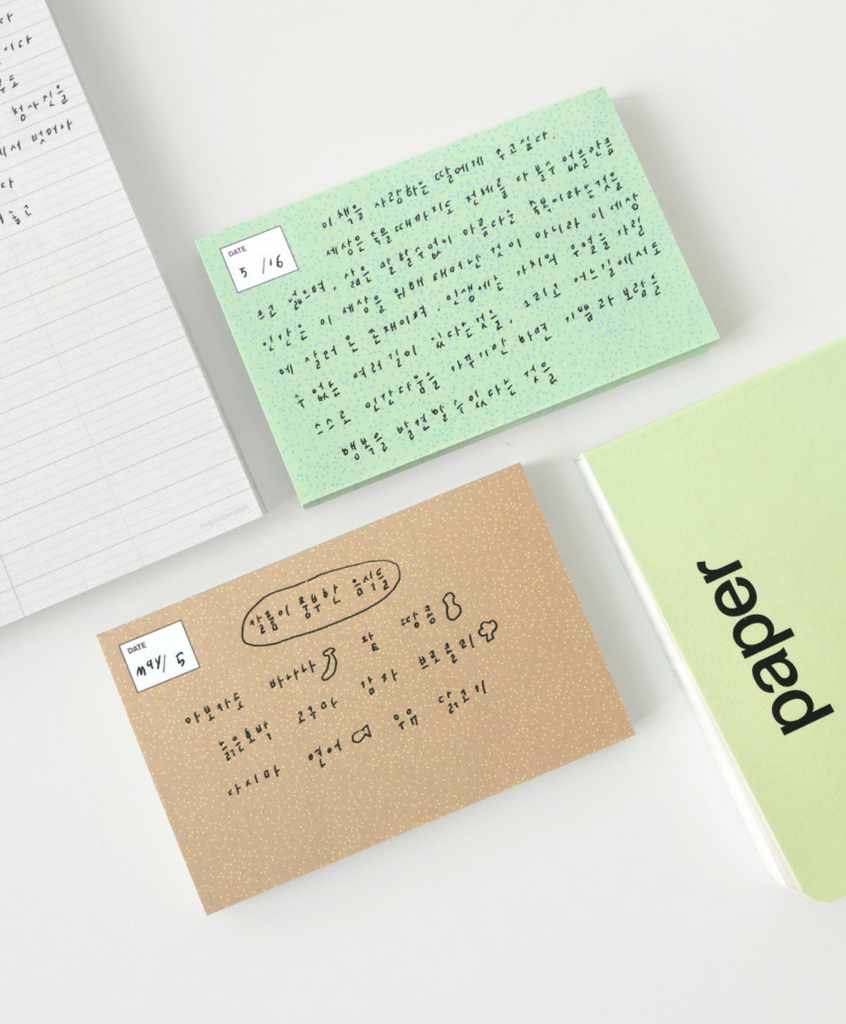 다
이다
도
청사진을
에서 벗어나
다
놓고
DATE
5 /16
이 책을 사랑하는 딸에게 주고싶다.
세상은 죽을때까지도 전체를 다 볼수 없을만큼
크고 넓으며, 삶은 말할수없이 아름다운 축복이라는것을
인간은 이 세상을 위해 태어난 것이 아니라 이 세상
에 살러 온 존재이며, 인생에는 가치의 우열을 가릴
수 없는 여러 길이 있다는것을, 그리고 어느길에서도
스스로 인간다움을 가꾸기만 하면 기쁨과 보람을
행복을 발견할수있다는 것을
DATE
MAY/ 5
칼륨이 풍부한 음식들
아보카도 바나나 팥 땅콩
늙은호박 고구마 감자 브로콜리
다시마 연어 우유 닭고기
paper